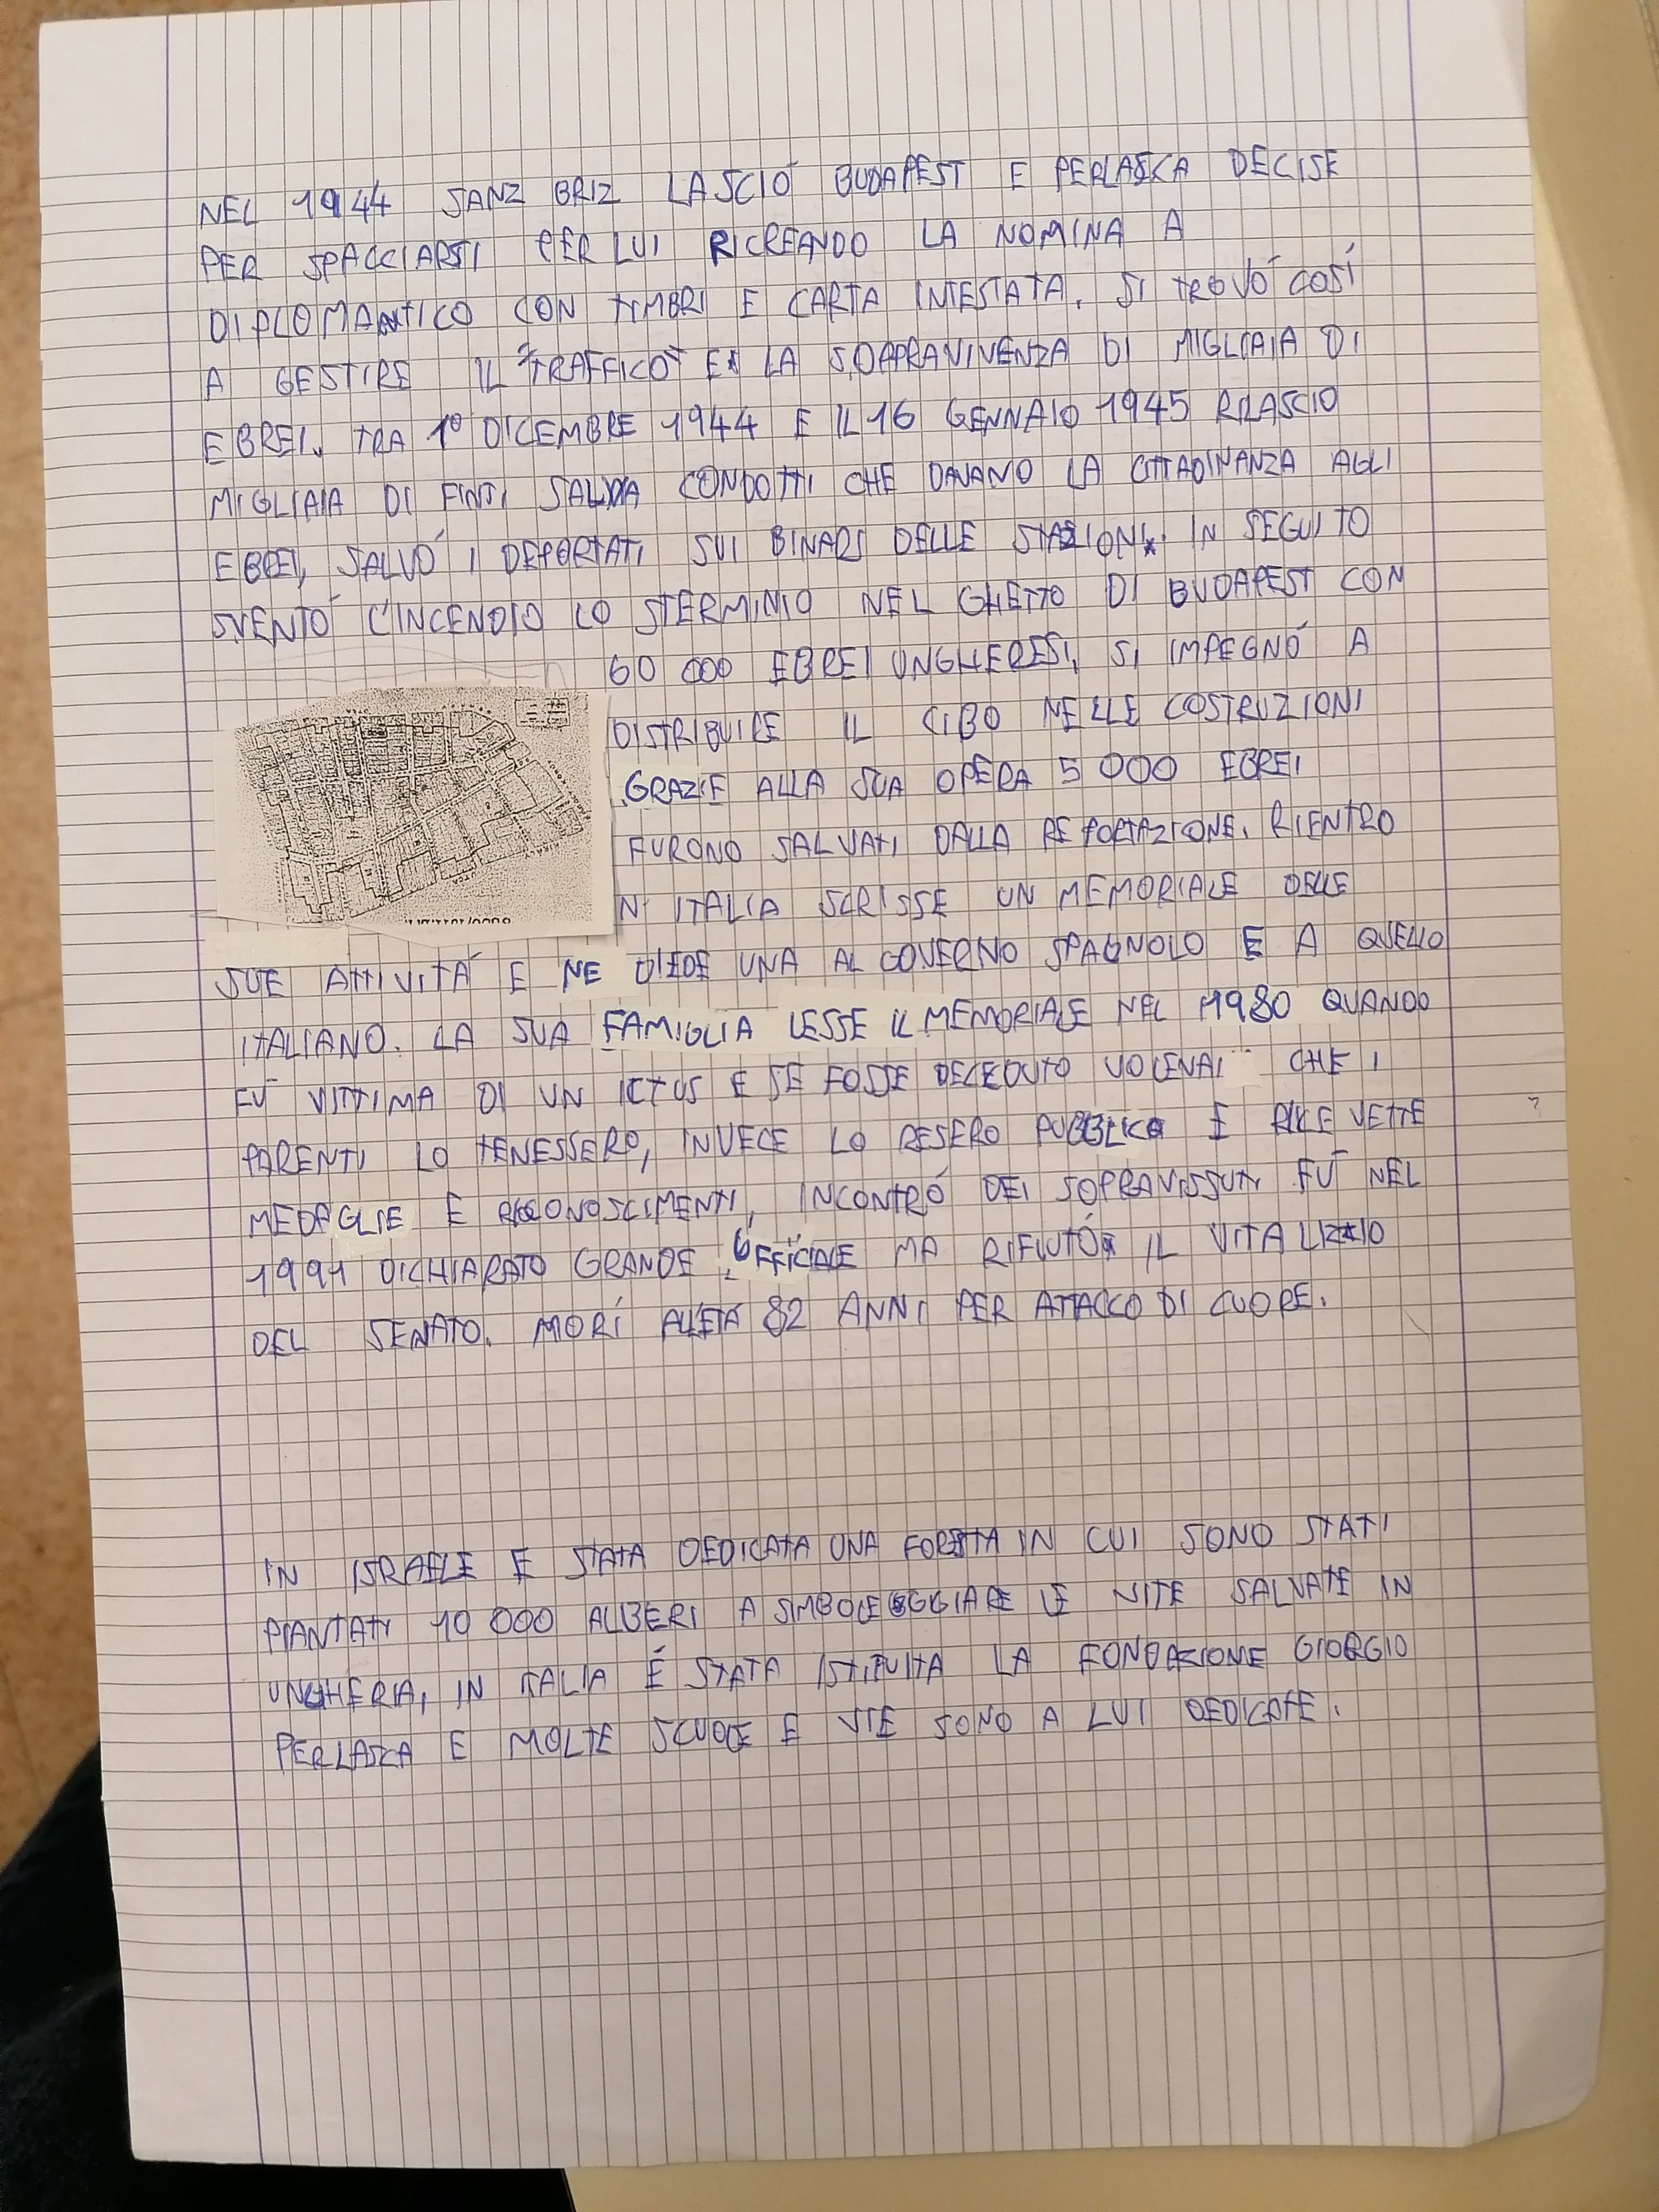 NEL 1944 SANZ BRIZ LASCIÓ BUDAPEST E PERLASCA DECISE
PER SPACCIARSI PER LUI RICREANDO LA NOMINA A
DIPLOMATICO CON TIMBRI E CARTA INTESTATA. SI TROVÓ COSÍ
A GESTIRE IL "TRAFFICO" E LA SOPRAVIVENZA DI MIGLIAIA DI
EBREI, TRA 1º DICEMBRE 1944 E IL 16 GENNAIO 1945 RILASCIO
MIGLIAIA DI FINTI SALVA CONDOTTI CHE DAVANO LA CITTADINANZA AGLI
EBREI, SALVÓ I DEPORTATI SUI BINARI DELLE STAZIONI. IN SEGUITO
SVENTÓ L'INCENDIO LO STERMINIO NEL GHETTO DI BUDAPEST CON
60 000 EBREI UNGHERESI, SI IMPEGNÓ A
DISTRIBUIRE IL CIBO NELLE COSTRUZIONI
GRAZIE ALLA SUA OPERA 5 000 EBREI
FURONO SALVATI DALLA REPORTAZIONE. RIENTRO
IN ITALIA SCRISSE UN MEMORIALE DELLE
SUE ATTIVITÁ E NE DIEDE UNA AL GOVERNO SPAGNOLO E A QUELLO
ITALIANO. LA SUA FAMIGLIA LESSE IL MEMORIALE NEL 1980 QUANDO
FÚ VITTIMA DI UN ICTUS E SE FOSSE DECEDUTO VOLEVA CHE I
PARENTI LO TENESSERO, INVECE LO RESERO PUBBLICO E RICEVETTE
MEDAGLIE E RICONOSCIMENTI, INCONTRÓ DEI SOPRAVISSUTI FÚ NEL
1991 DICHIARATO GRANDE UFFICIALE MA RIFIUTÓ IL VITALIZIO
DEL SENATO. MORÍ ALL'ETÁ 82 ANNI PER ATTACCO DI CUORE.
IN ISRAELE E STATA DEDICATA UNA FORESTA IN CUI SONO STATI
PIANTATI 10 000 ALBERI A SIMBOLEGGIARE LE VITE SALVATE IN
UNGHERIA, IN ITALIA É STATA ISTITUITA LA FONDAZIONE GIORGIO
PERLASCA E MOLTE SCUOLE E VIE SONO A LUI DEDICATE.